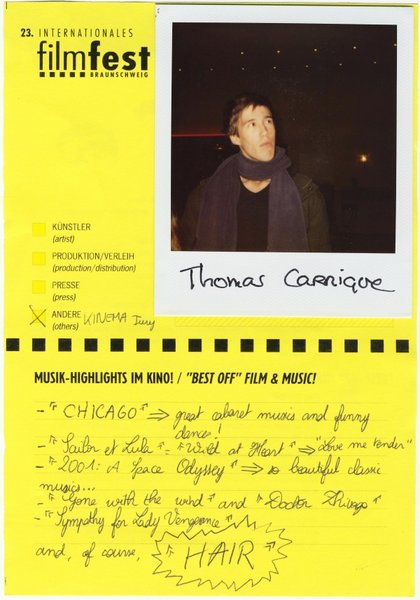 23. INTERNATIONALES
filmfest
BRAUNSCHWEIG
Thomas Carrique
KÜNSTLER
(artist)
PRODUKTION/VERLEIH
(production/distribution)
PRESSE
(press)
ANDERE
(others) KINEMA Jury
MUSIK-HIGHLIGHTS IM KINO! / "BEST OFF" FILM & MUSIC!
- "CHICAGO" ⇒ great cabaret musics and funny
dances!
- "Sailor et Lula" = "Wild at Heart" ⇒ "Love me tender"
- "2001: A Space Odyssey" ⇒ beautiful classic
musics...
- "Gone with the wind" and "Doctor Jivago"
- "Sympathy for Lady Vengeance"
and, of course, "HAIR"